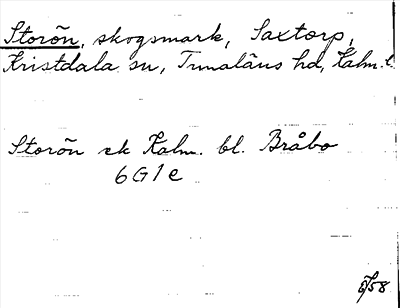 Storön, skogsmark, Saxtorp,
Kristdala sn, Tunaläns hd, Kalm. l
Storön ek Kalm. bl. Bråbo
6G1e
58